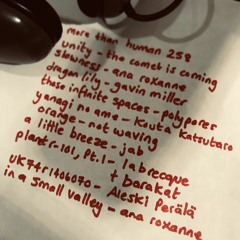 more than human 258
unity - the comet is coming
slowness - ana roxanne
dragon lily - gavin miller
those infinite spaces - polypores
yanagi no ame - Kouta Katsutaro
orange - not waving
a little breeze - jab
planetr-101, Pt.1 - labrecque
+ barakat
UK74R1406070 - Aleski Perälä
in a small valley - ana roxanne